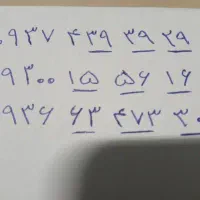 ۰۹۳۷ ۴۳۹ ۳۹ ۲۹
۹۳۰۰ ۱۵ ۵۶ ۱۶
۹۳۶ ۶۳ ۴۷۳ ۳۰